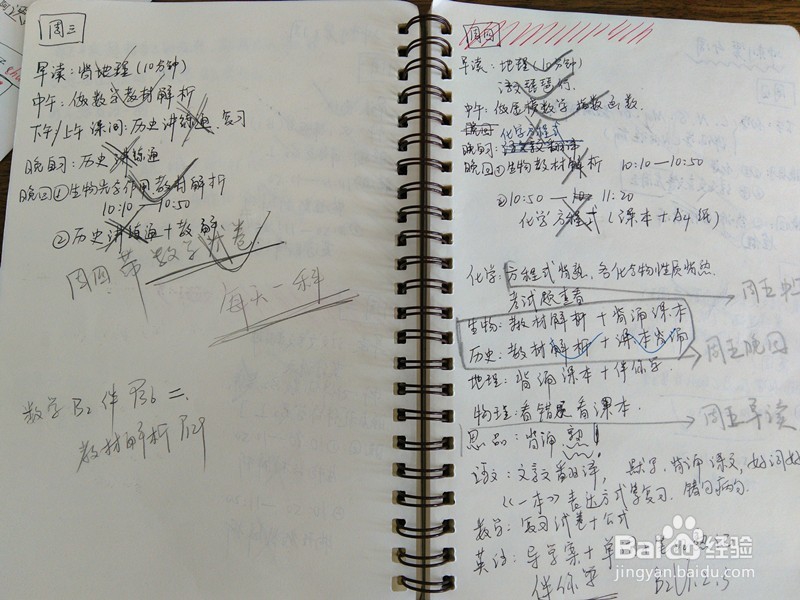 周三
早读:背地理(10分钟)
中午:做数学教材解析
下午/上午 课间:历史讲练通.复习
晚自习:历史讲练通
晚回①生物光合作用教材解析
10:10—10:50
②历史讲练通+教解
周四.带数学试卷.
每天一科
数学 B2 伴 P36 二.
教材解析 P29
周四
早读:地理(10分钟)
中午:做足模数学 指数函数
化学方程式
晚自习:
晚回①生物教材解析 10:10—10:50
②10:50— 11:20
化学方程式(课本+A4纸)
化学:方程式背熟.各化合物性质背熟
考试题查看
生物:教材解析+背诵课本
历史:教材解析+课本背诵
周五晚回
地理:背诵课本+伴你学
物理:看错题看课本.
周五早读
思品:背诵 熟!
语文:文言文翻译, 默写.背诵课文,好词好
《一本》表达方式等复习.错句病句.
数学:复习试卷+公式
英语:导学案+单
伴你学
Baidu经验
jingyan.baidu.com